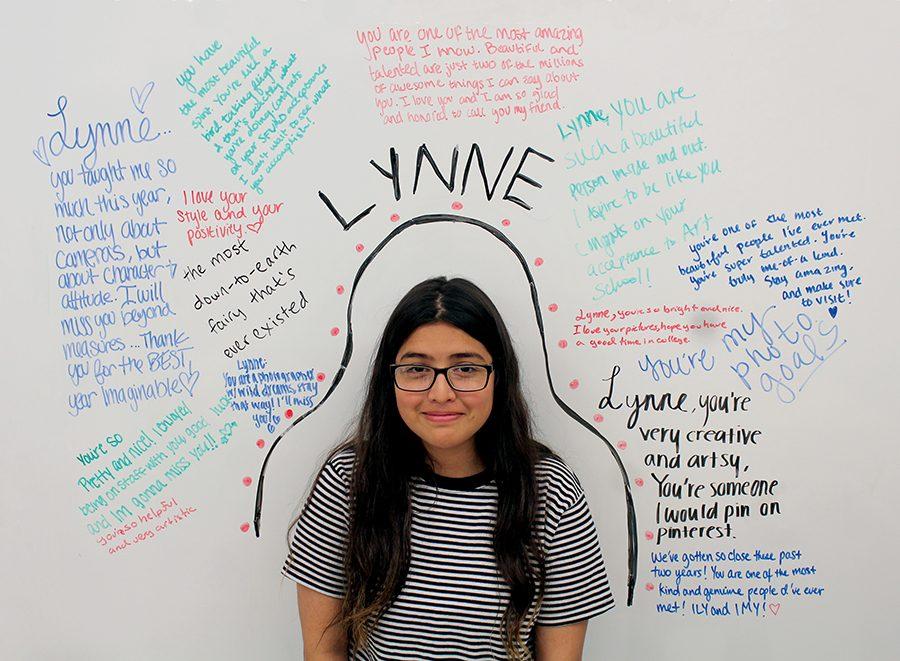 LYNNE
Lynne...
you taught me so
much this year,
not only about
cameras, but
about character +
attitude. I will
miss you beyond
measures... Thank
you for the BEST
year Imaginable
you have
the most beautiful
spirit. You're like a
bird taking flight
& that's exactly what
you're doing! congrats
on your acceptance
I can't wait to see what
you accomplish!
I love your
style and your
positivity.
the most
down-to-earth
fairy that's
ever existed
Lynne:
You are a photographer
w/ wild dreams, stay
that way! I'll miss
you!
You're so
Pretty and nice! I enjoyed
being on staff with you! good luck
and Im gonna miss you!!
you're so helpful
and very artistic
you are one of the most amazing
people I know. Beautiful and
talented are just two of the millions
of awesome things I can say about
you. I love you and I am so glad
and honored to call you my friend.
Lynne, you are
such a beautiful
person inside and out.
I Aspire to be like you
Congrats on your
acceptance to Art
School!
you're one of the most
beautiful people I've ever met.
you're super talented. You're
truly one-of-a kind.
Stay amazing.
and make sure
to VISIT!
Lynne, you're so bright and nice.
I love your pictures, hope you have
a good time in college.
You're my
photo
goals!
Lynne, you're
very creative
and artsy,
You're someone
I would pin on
pinterest.
We've gotten so close these past
two years! You are one of the most
kind and genuine people I've ever
met! ILY and IMY!